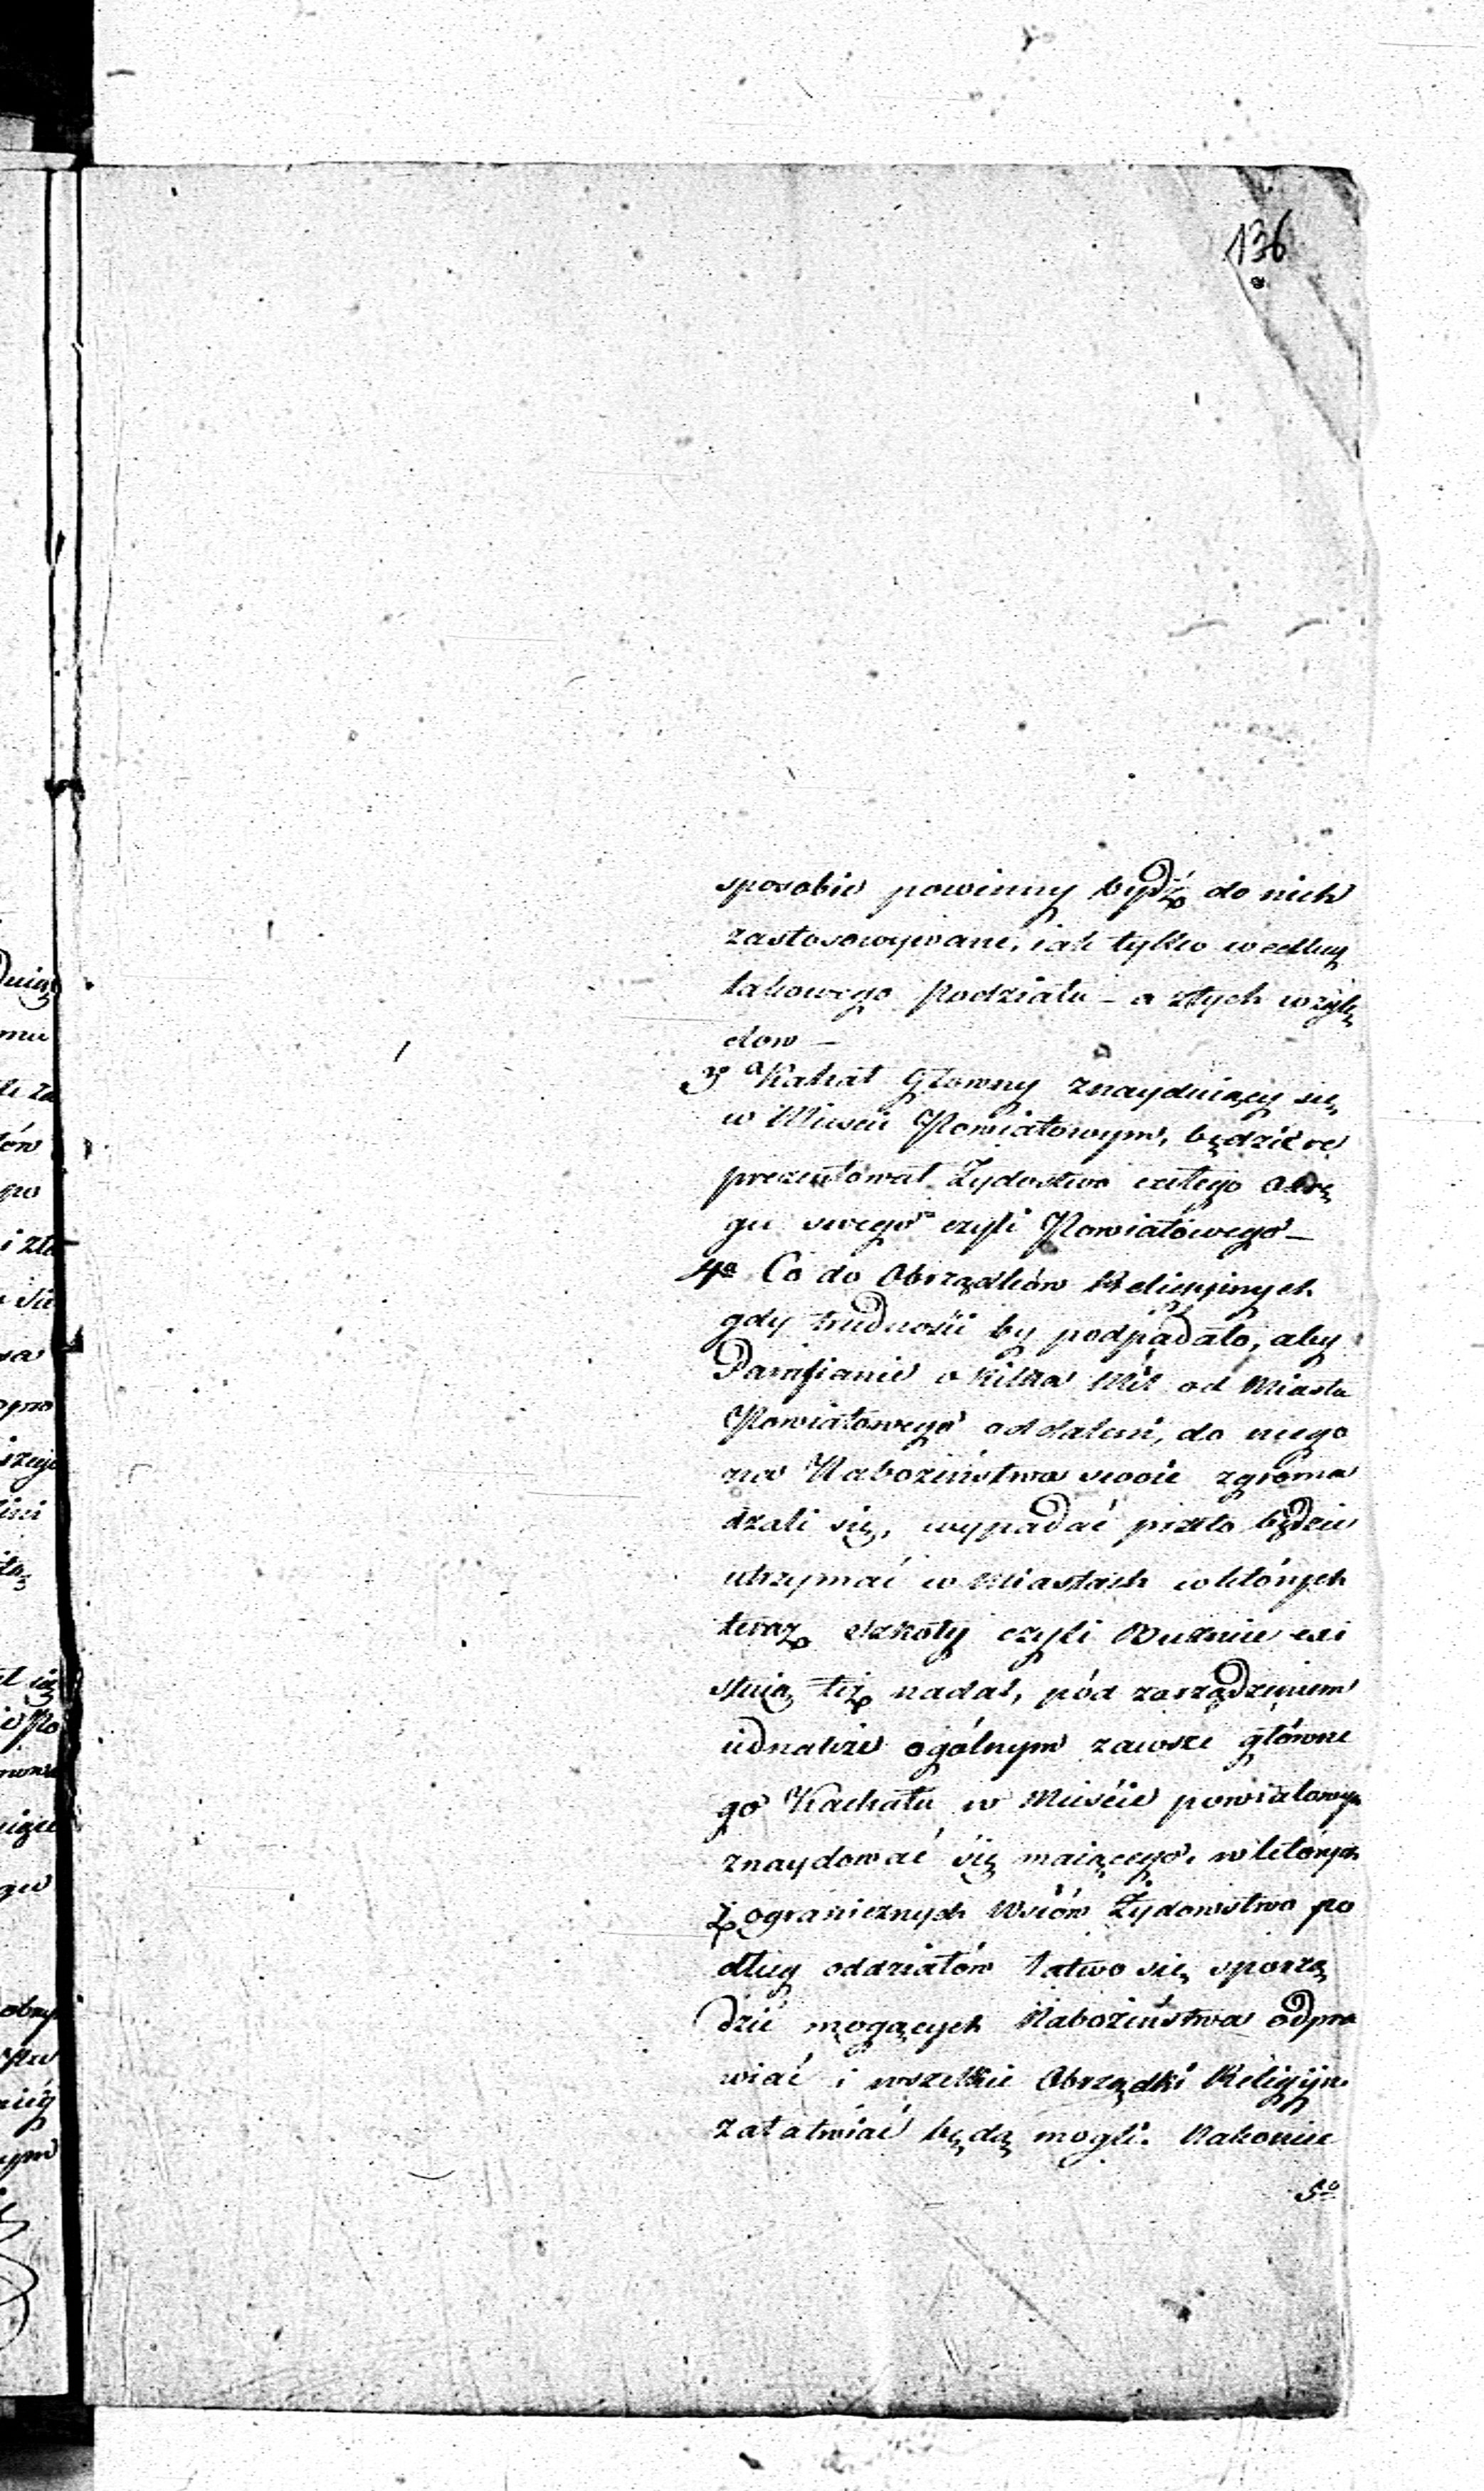 136
sposobie powinny bydź do nich
zastosowywane, iak tylko według
takowego Podziału - a ztych wzglę
dow -
3o Kahał Głowny znayduiący się
w Mieście Powiatowym, będzie re
prezentował Żydostwo całego Okrę
gu swego czyli Powiatowego -
4o Co do Obrządków Religijnych
gdy trudności by podpadało, aby
Parafianie o kilka Mil od Miasta
Powiatowego oddaleni, do niego
na Nabożeństwa swoie zgroma
dzali się, wypadać przeto będzie
utrzymać w Miastach w których
teraz szkoły czyli Bużnice exi
stuią też nadal, pód zarządzeniem
iednakże ogólnym zawsze główne
go Kachału w Mieście powiatowym
znaydować się maiącego, w których
z ogranicznych Wsiów Żydowstwo po
dług oddziałów łatwo się sporzą
dzić mogących Nabożeństwa odpra
wiać i wszelkie Obrządki Religijne
załatwiać będą mogli. Nakoniec
5o